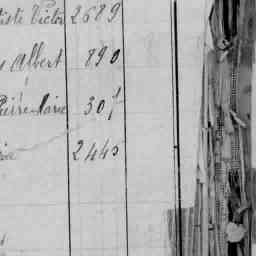 tiste Victor 2689
Albert 890
Pierre Marie 307
2445